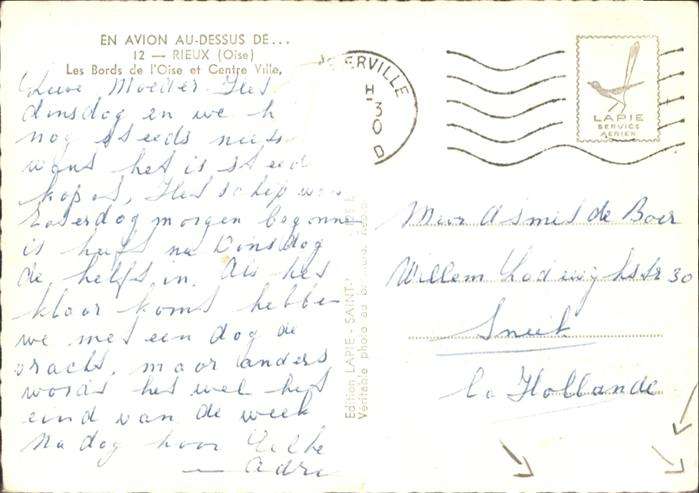 EN AVION AU-DESSUS DE...
12 — RIEUX (Oise)
Les Bords de l'Oise et Centre Ville,
Lieve Moeder Het
dinsdag en we h
nog steeds niets
want het is steed
kapot, Het schip was
Zaterdag morgen begonne
is hefft nu Dinsdag
de helft in. Als het
klaar komt hebbe
we met een dag de
vracht, maar anders
wordt het wel het
eind van de week
Na dag hoor
ERVILLE
H
30
D
LAPIE
SERVICE
AERIEN
Edition LAPIE - SAINT-
Véritable photo au
Mevr A Smit de Boer
Willem Lodewijkstr 30
Sneek
la Hollande